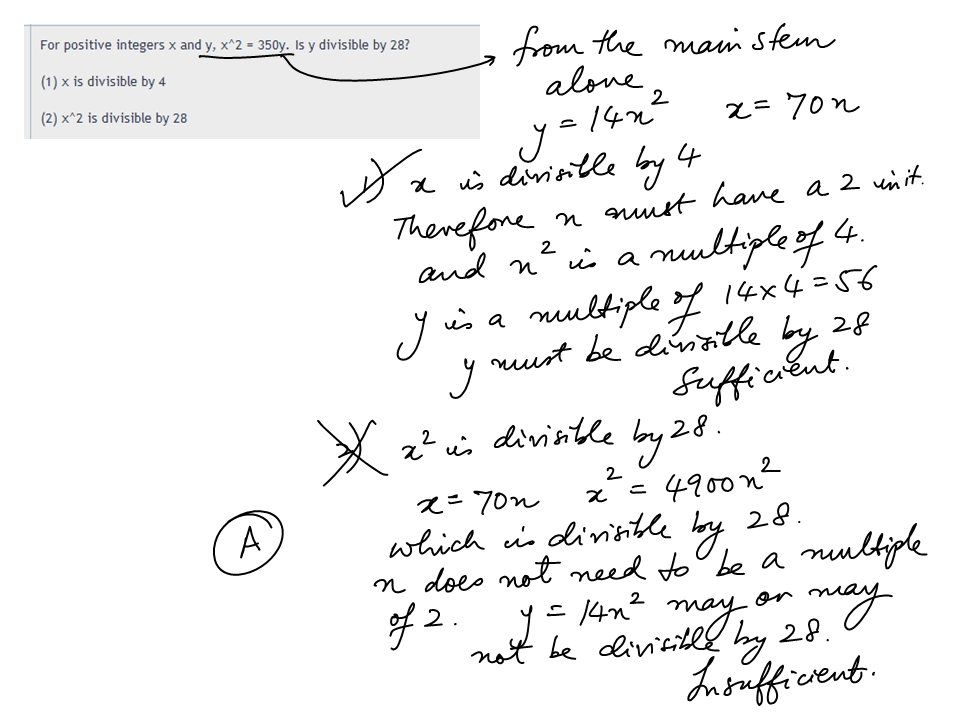 For positive integers x and y, x^2 = 350y. Is y divisible by 28?
(1) x is divisible by 4
(2) x^2 is divisible by 28
from the main stem
alone
y = 14n² x = 70n
1) x is divisible by 4
Therefore n must have a 2 in it.
and n² is a multiple of 4.
y is a multiple of 14x4 = 56
y must be divisible by 28
Sufficient.
2) x² is divisible by 28.
x = 70n x² = 4900n²
which is divisible by 28.
n does not need to be a multiple
of 2. y = 14n² may or may
not be divisible by 28.
Insufficient.
A